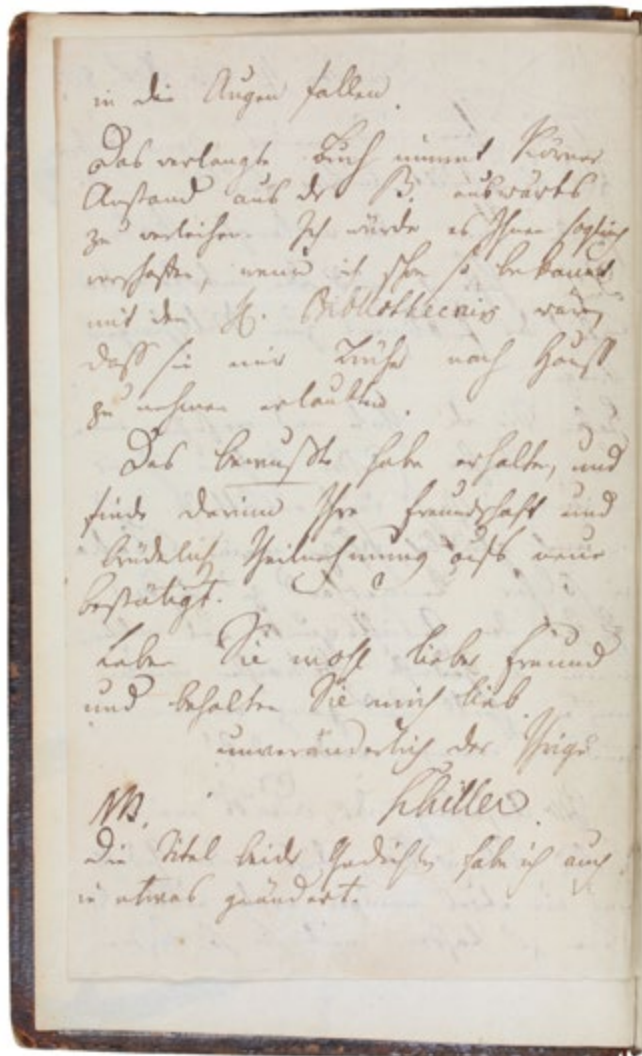 in die Augen fallen.
Das verlangte Buch nimmt Körner
Anstand aus der B. auswärts
zu verleihen. Ich würde es Ihnen sogleich
verschaffen, wenn ich schon so bekannt
mit den H. Bibliothecairs wäre,
daß sie mir Bücher nach Hauß
zu nehmen erlaubten.
Das bewußte habe erhalten, und
finde darinn Ihre Freundschaft und
brüderliche Theilnehmung aufs neue
bestätigt.
Leben Sie wohl lieber Freund
und behalten Sie mich lieb
unveränderlich der Ihrige
Schiller.
NB.
Die Titel beider Gedichte habe ich auch
in etwas geändert.